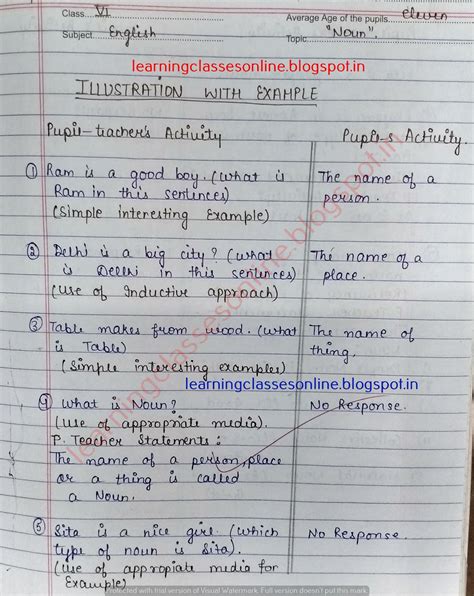 Class VI Average Age of the pupils eleven
Subject English Topic "Noun".
learningclassesonline.blogspot.in
ILLUSTRATION WITH EXAMPLE
Pupil-teacher's Activity Pupil-s Activity.
① Ram is a good boy. (what is The name of a
Ram in this sentences) person.
(Simple interesting Example)
② Delhi is a big city? (what The name of a
is Delhi in this sentences) place.
(Use of Inductive approach)
③ Table makes from wood. (what The name of
is Table) thing.
(Simple interesting examples)
learningclassesonline.blogspot.in
④ What is Noun? No Response.
(Use of appropriate media).
P. Teacher Statements:
The name of a person, place
or a thing is called
a Noun.
⑤ Sita is a nice girl. (which No Response.
type of noun is Sita).
(Use of appropiate media for
Example)
learningclassesonline.blogspot.in
Protected with trial version of Visual Watermark. Full version doesn't put this mark.